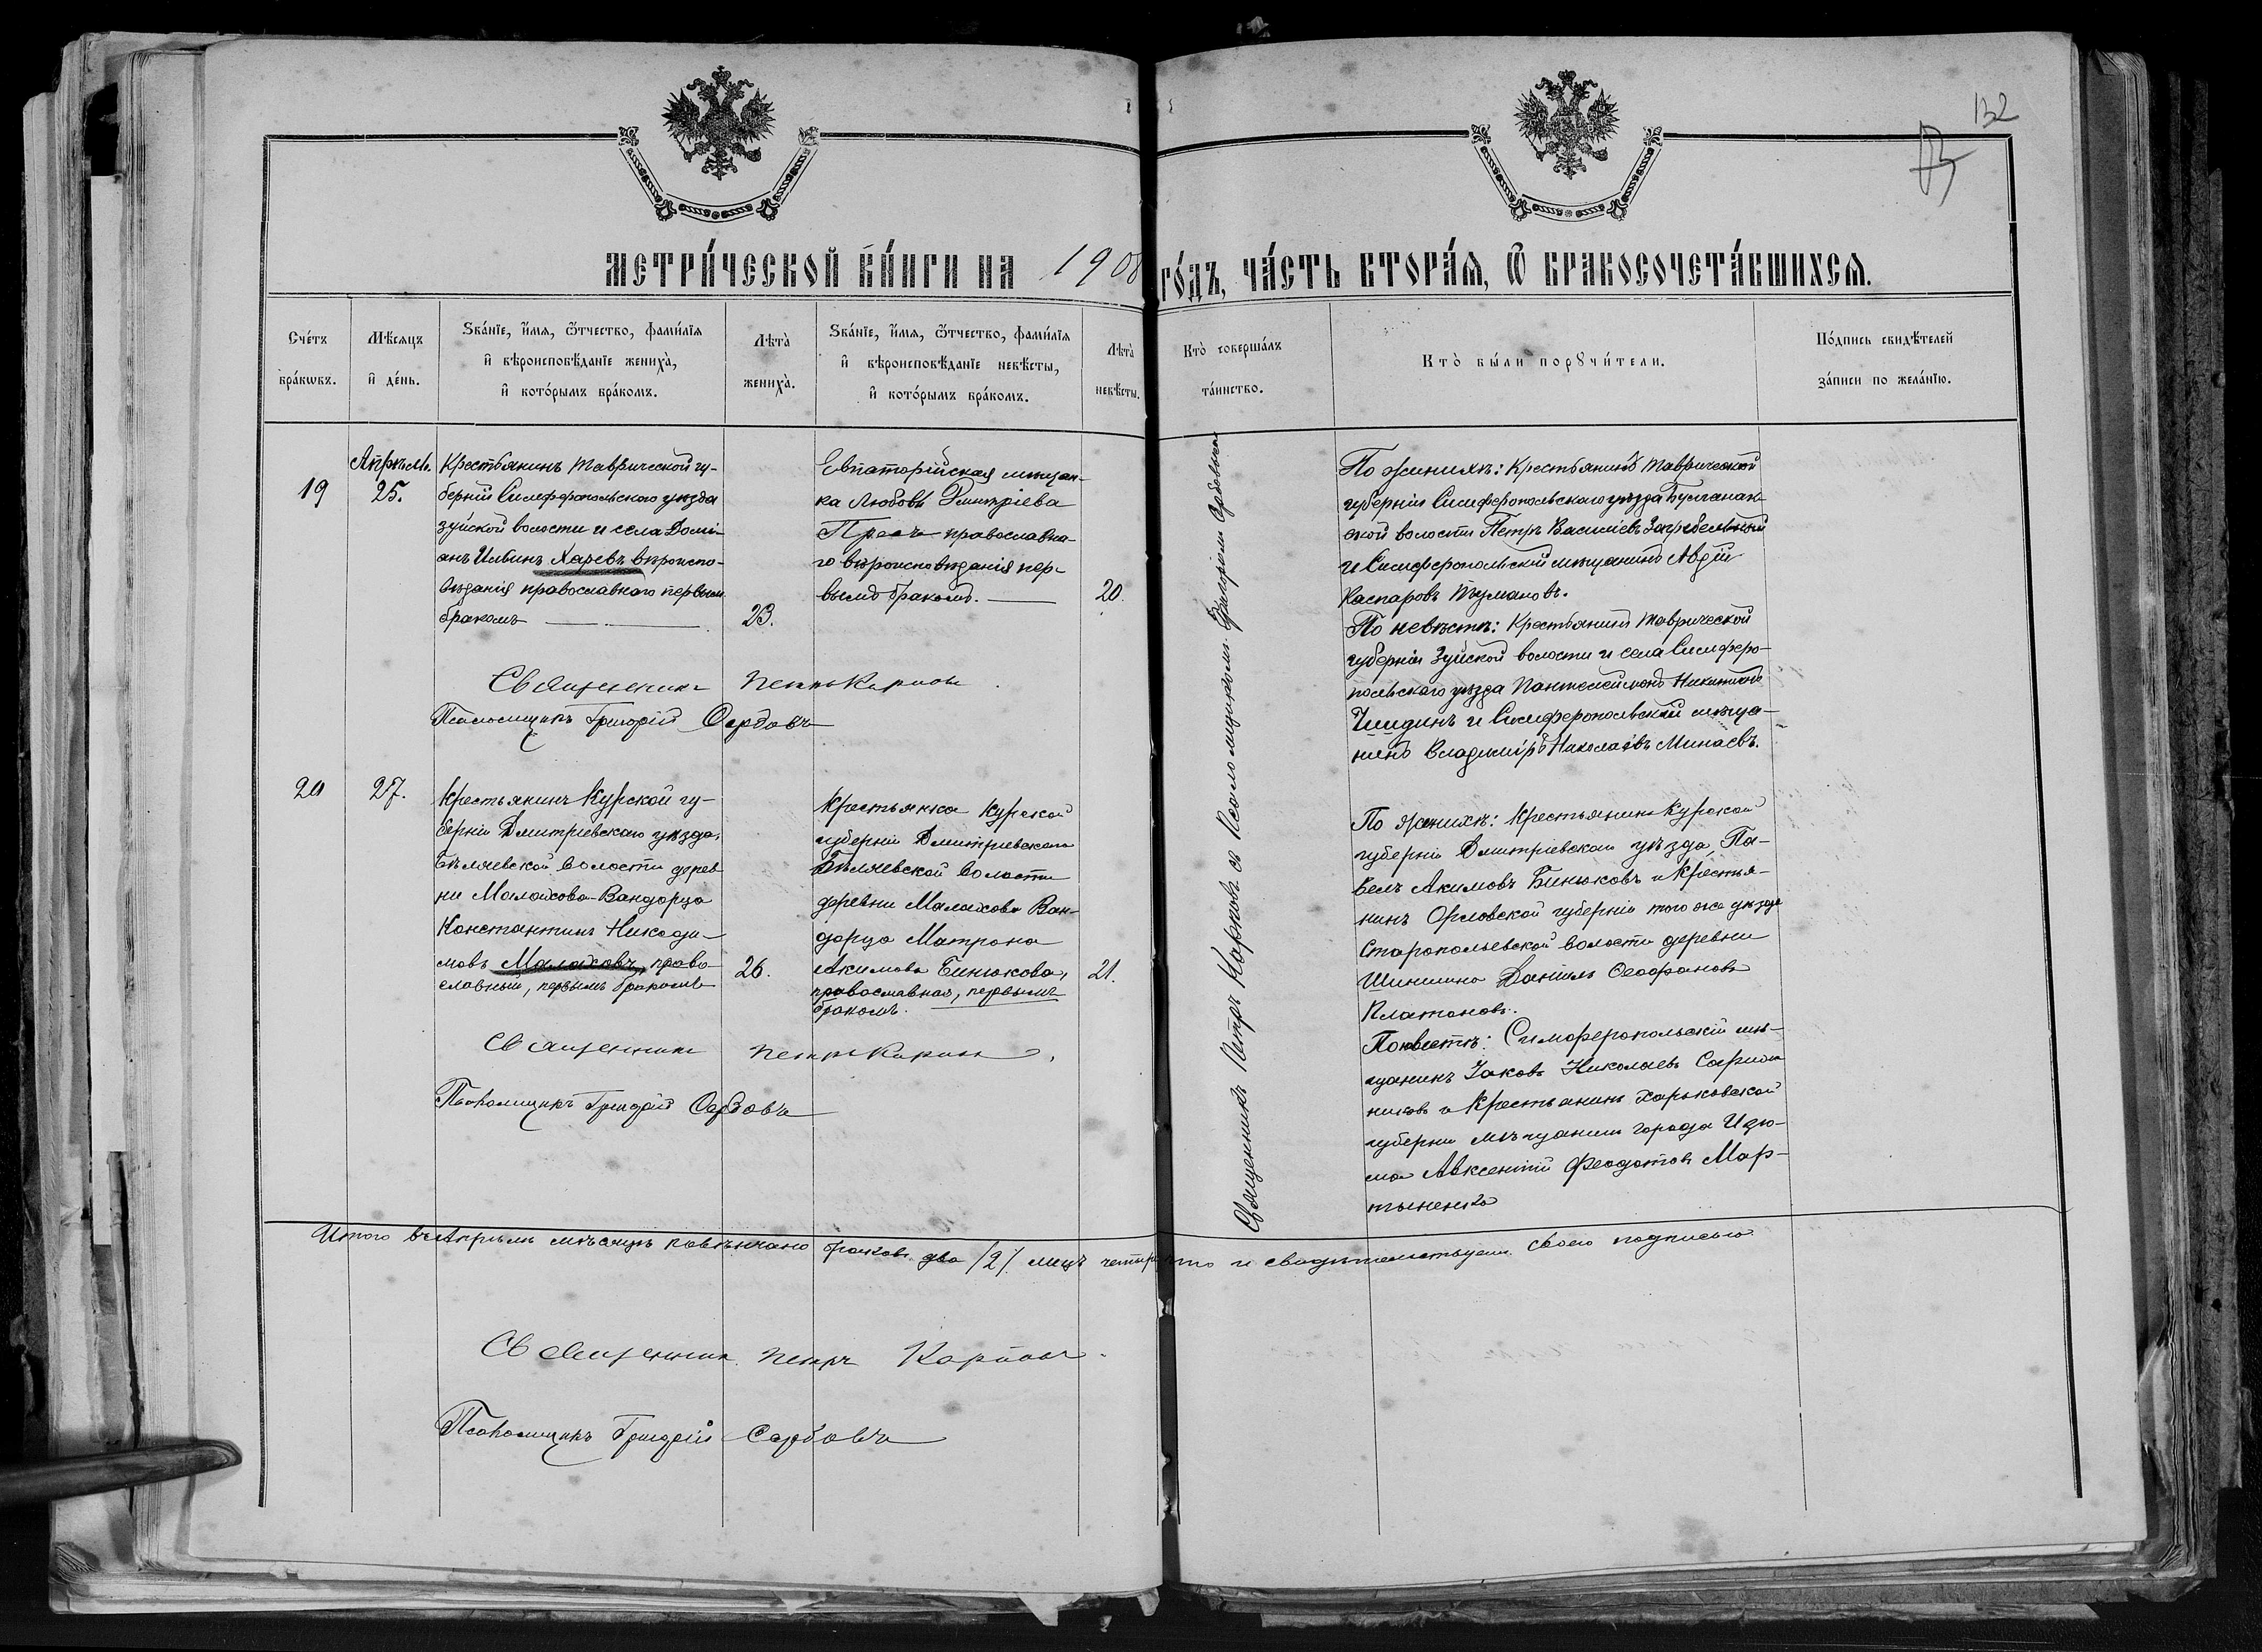 132
МЕТРИ́ЧЕСКОЙ КНИ́ГИ НА 1908 ГО́ДЪ, ЧА́СТЬ ВТОРА́Я, Ѿ БРАКОСОЧЕТА́ВШИХСЯ.
Сче́тъ бра́кѡвъ.
Мѣ́сяцъ и҆ де́нь.
Ѕва́нїе, и҆́мя, ѻ҆́тчество, фами́лїя
и҆ вѣроисповѣ́данїе жениха̀,
и҆ кото́рымъ бра́комъ.
Лѣта̀ жениха̀.
Ѕва́нїе, и҆́мя, ѻ҆́тчество, фами́лїя
и҆ вѣроисповѣ́данїе невѣ́сты,
и҆ кото́рымъ бра́комъ.
Лѣта̀ невѣ́сты.
Кто̀ соверша́лъ
та́инство.
Кто̀ бы́ли порꙋчи́тели.
По́дпись свидѣ́телей
за́писи по жела́нїю.
19
Апрѣль.
25.
Крестьянинъ Таврической гу-
берніи Симферопольскаго уѣзда
Зуйской волости и села Доми-
анъ Ильинъ Харевъ вѣроиспо-
вѣданія православнаго первым
бракомъ
23.
Евпаторійская мѣщан-
ка Любовь Димтріева
православна-
го вѣроисповѣданія пер-
вымъ бракомъ.
20.
Священникъ Петръ Карповъ
Псаломщикъ Григорій Сербовъ
Священникъ Петръ Карповъ съ Псаломщикомъ Григоріем Сербовым
По женихѣ: Крестьянинъ Таврической
губерніи Симферопольскаго уѣзда Булганак-
ской волости Петръ Василіевъ Загребельный
и Симферопольскій мѣщанинъ Авдій
Каспаровъ Тумановъ.
По невѣстѣ: Крестьянинъ Таврической
губерніи Зуйской волости и села Симферо-
польскаго уѣзда Пантелеймонъ Никитинъ
и Симферопольскій мѣща-
нинъ Владиміръ Николаевъ Минаевъ.
20
27.
Крестьянинъ Курской гу-
берніи Дмитріевскаго уѣзда,
Бѣляевской волости дерев
ни Малахова-Вандарца
Константинъ Никоди-
мовъ Малаховъ, право-
славный, первымъ бракомъ
26.
Крестьянка Курской
губерніи Дмитріевскаго
Бѣляевской волости
деревни Малахова Ван-
дарца Матрона
Акимова Бинюкова,
православная, первымъ
бракомъ.
21.
Священникъ Петръ Карповъ.
Псаломщикъ Григорій Сербовъ
По женихѣ: Крестьянинъ Курской
губерніи Дмитріевскаго уѣзда, Па-
велъ Акимовъ Бинюковъ и Крестья-
нинъ Орловской губерніи того же уѣзда
Старопольевской волости деревни
Шиншина Даніилъ Феофановъ
Платоновъ.
По невѣстѣ: Симферопольскій мѣ-
щанинъ Іаковъ Николаевъ
никовъ и Крестьянинъ Харьковской
губерніи мѣщанинъ города Изю-
ма Авксентій Феодотовъ Мар-
тыненко
Итого въ Апрѣлѣ мѣсяцѣ повѣнчано браковъ два /2/ лицъ четыре что и свидѣтельствуемъ своею подписью
Священникъ Петръ Карповъ.
Псаломщикъ Григорій Сербовъ